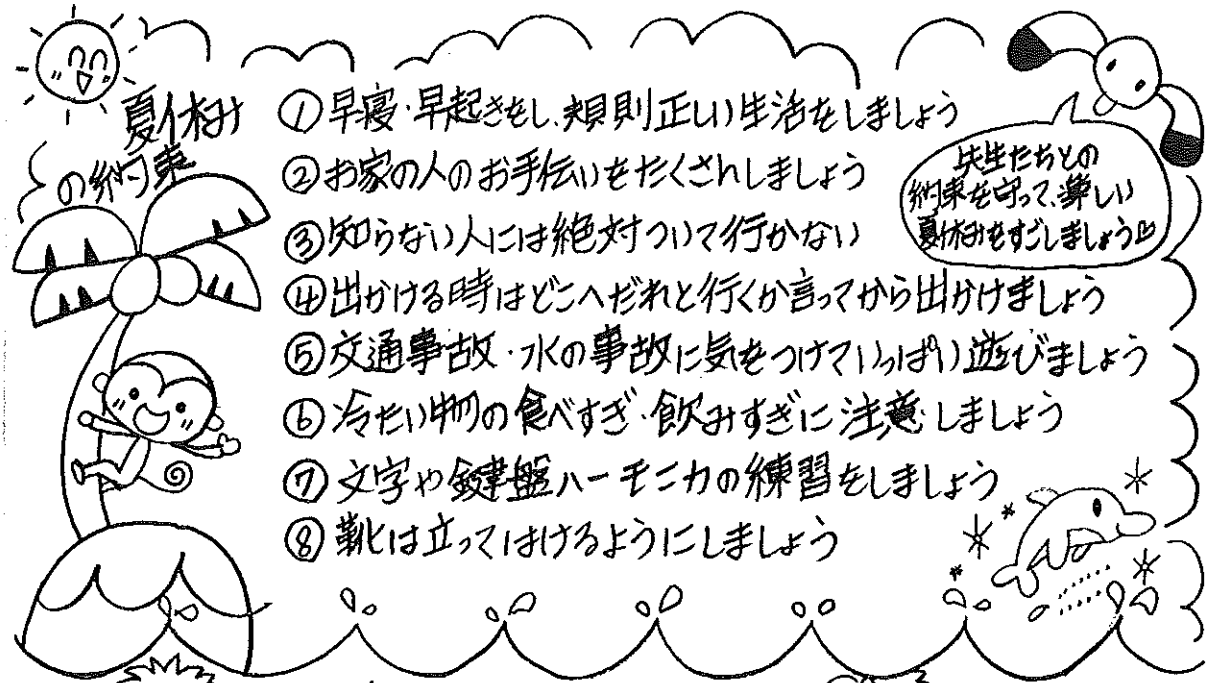 夏休み
の約束
①早寝・早起きをし、規則正しい生活をしましょう
②お家の人のお手伝いをたくさんしましょう
③知らない人には絶対ついて行かない
④出かける時はどこへだれと行くか言ってから出かけましょう
⑤交通事故・水の事故に気をつけていっぱい遊びましょう
⑥冷たい物の食べすぎ・飲みすぎに注意しましょう
⑦文字や鍵盤ハーモニカの練習をしましょう
⑧靴は立ってはけるようにしましょう
先生たちとの
約束を守って、楽しい
夏休みをすごしましょう♡